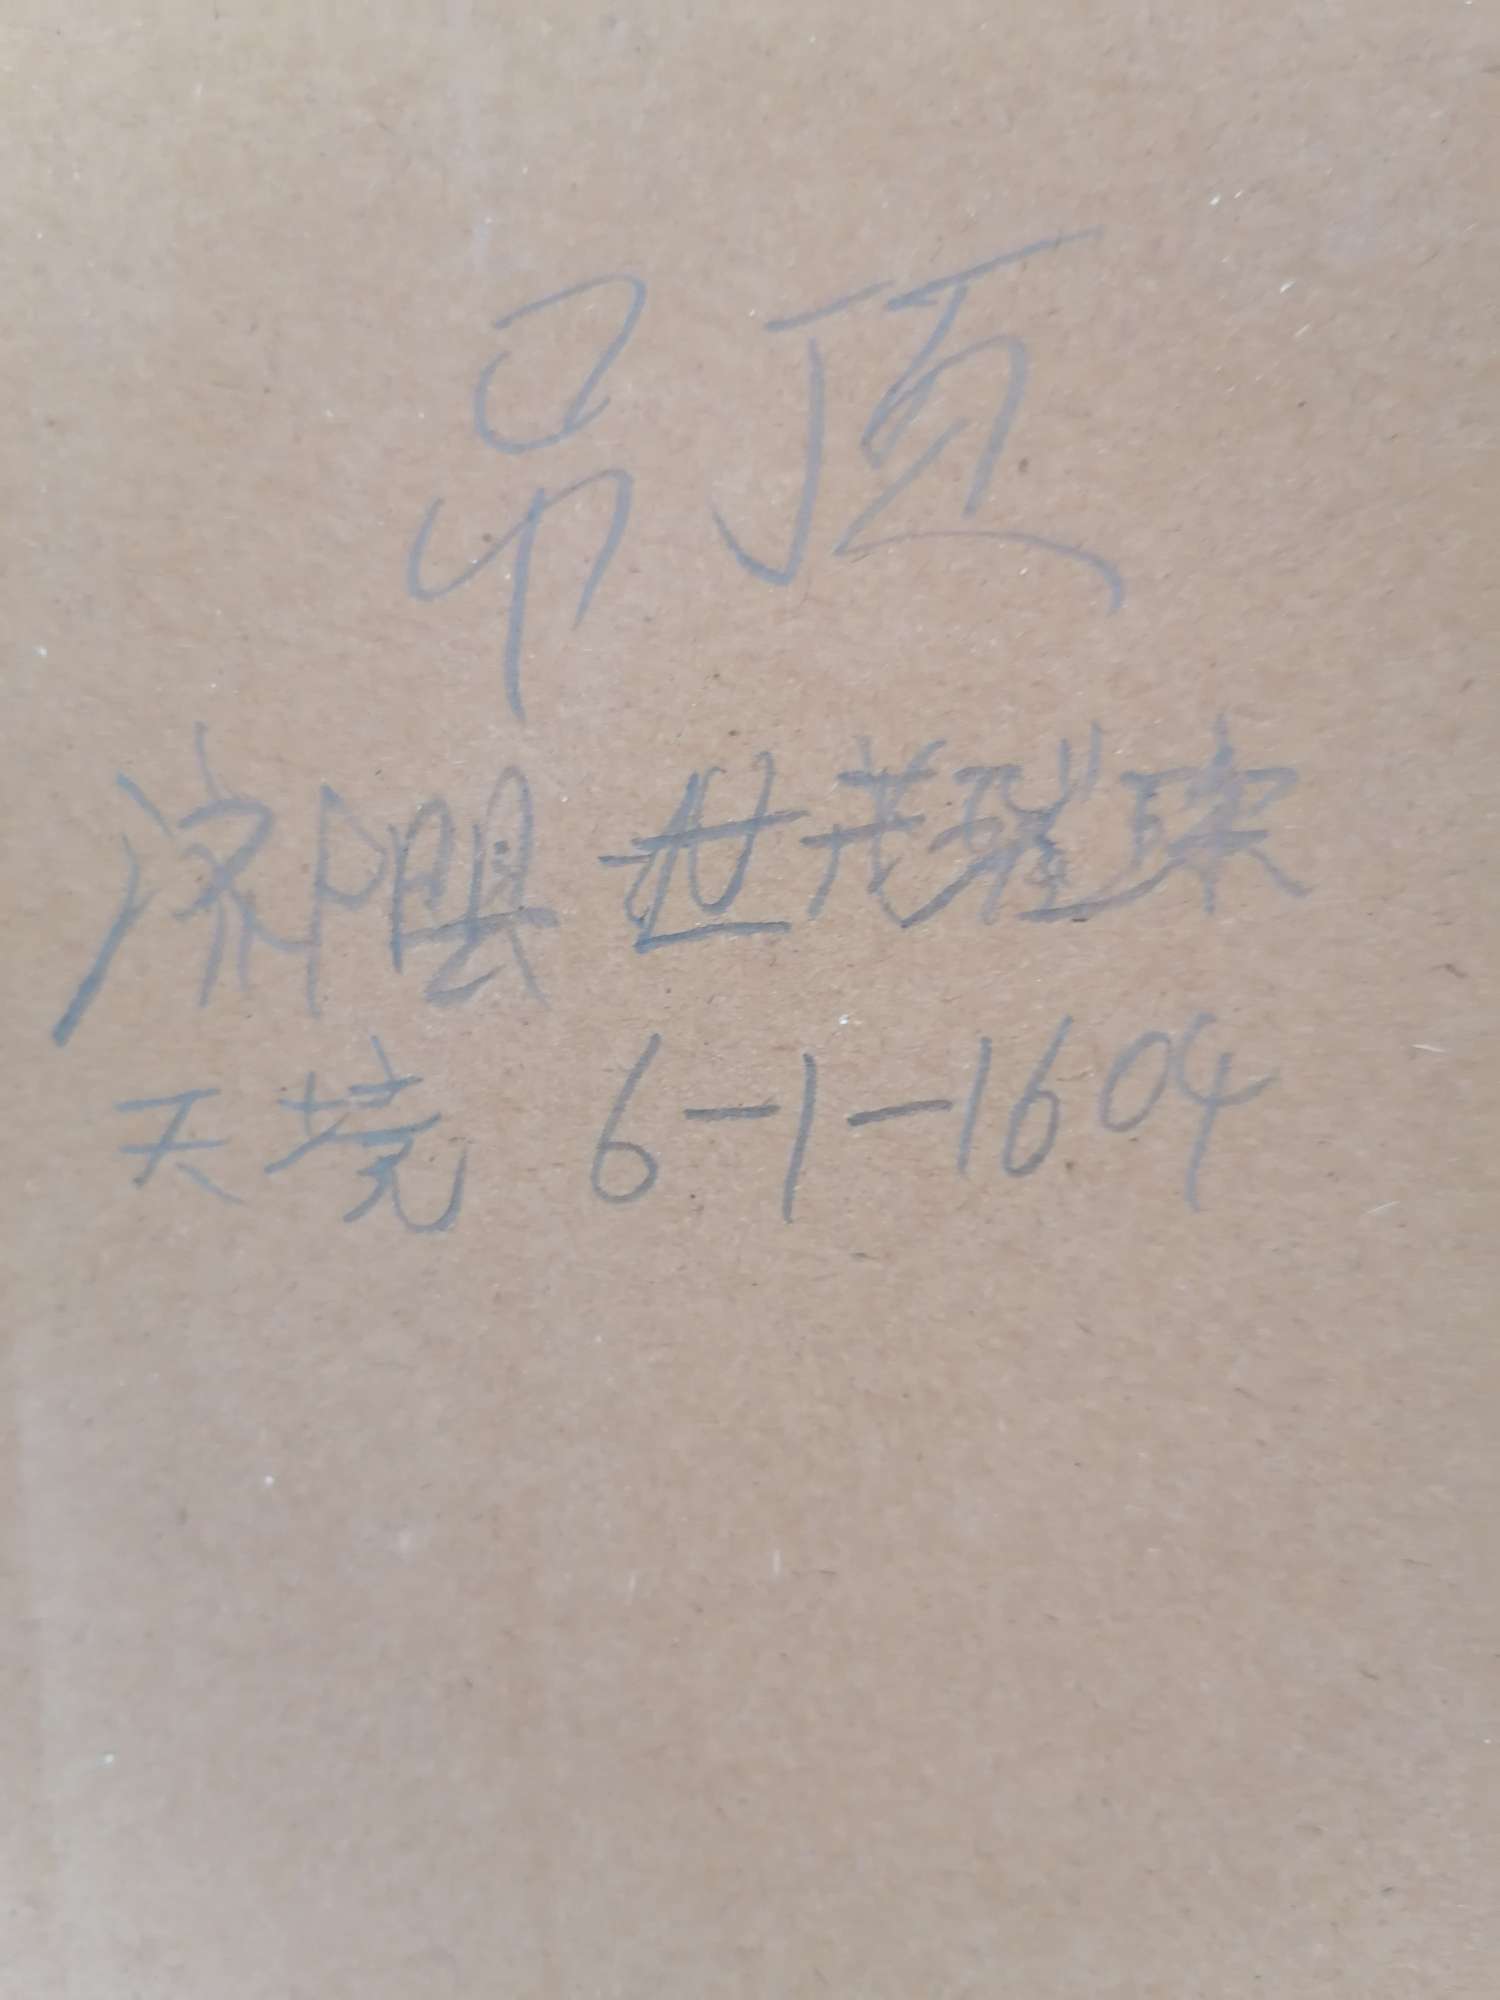 吊顶
济阳县世茂璀璨
天境 6-1-1604